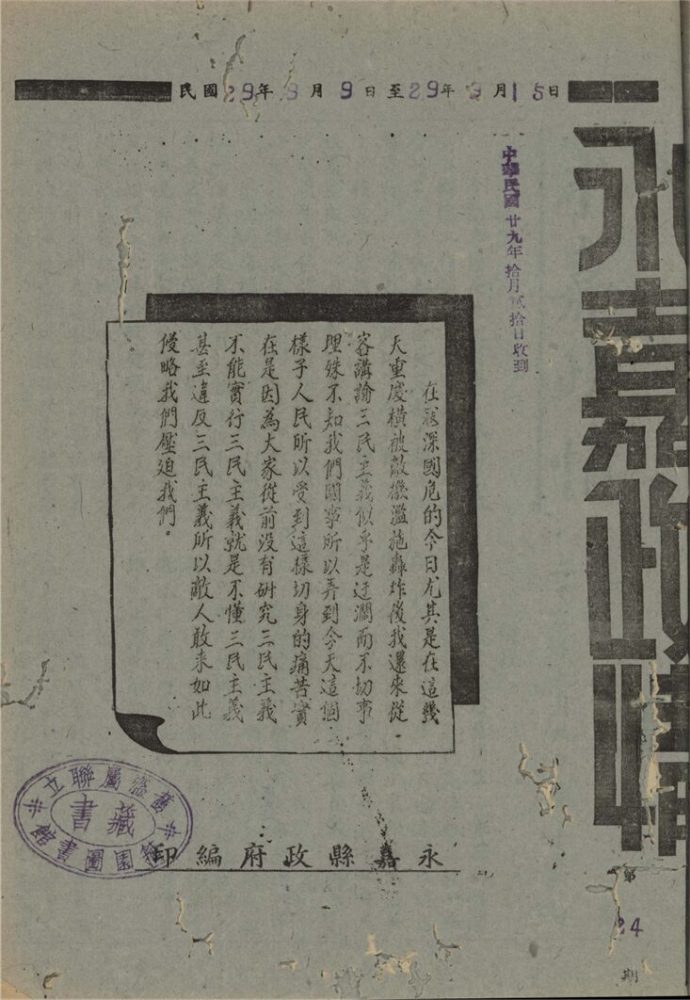 民國29年9月9日至29年9月15日
永嘉政情
第
24
期
中華民國廿九年拾月貳拾日收到
在禍深國危的今日尤其是在這幾
天重慶橫被敵機濫施轟炸後我還來從
容講論三民主義似乎是迂濶而不切事
理殊不知我們國事所以弄到今天這個
樣子人民所以受到這樣切身的痛苦實
在是因為大家從前没有研究三民主義
不能實行三民主義就是不懂三民主義
甚至違反三民主義所以敵人敢来如此
侵略我們壓迫我們。
永嘉縣政府編印
舊溫屬聯立籀園圖書館
藏書